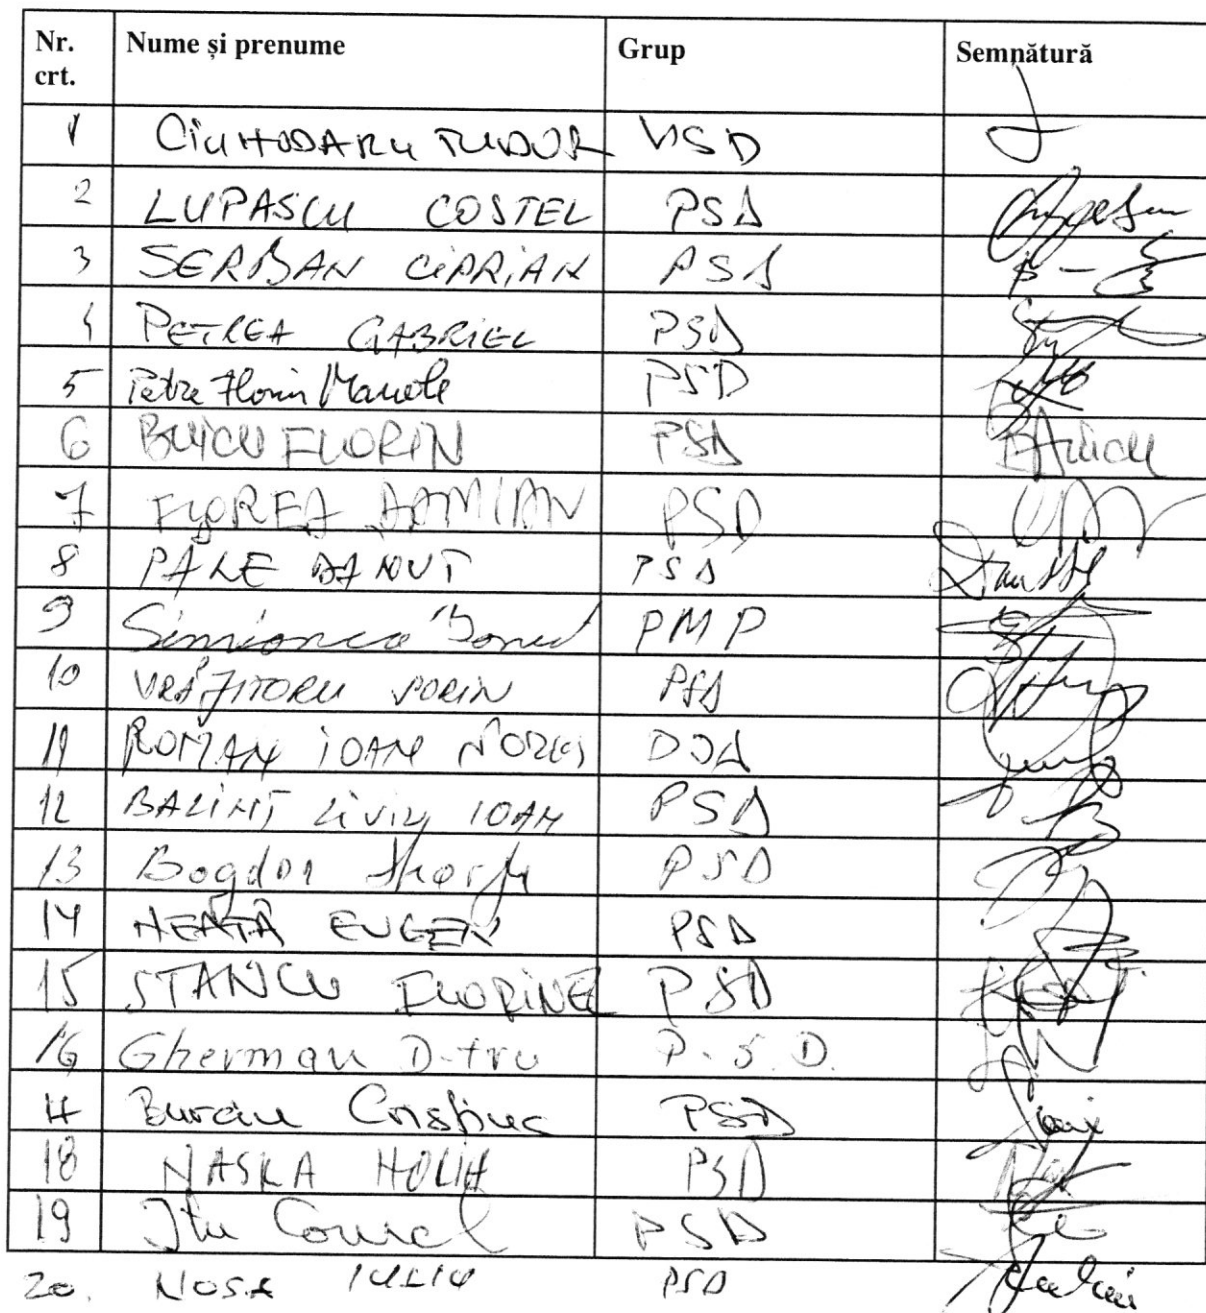 Nr. crt. Nume și prenume Grup Semnătură
1 CIUHODARU TUDOR PSD
2 LUPASCU COSTEL PSD
3 SERBAN CIPRIAN PSD
4 PETREA GABRIEL PSD
5 Petre Florin Manole PSD
6 BUICU FLORIN PSD
7 FLOREA DAMIAN PSD
8 PALE DANUT PSD
9 Simionca Ionut PMP
10 VRĂJITORU SORIN PSD
11 ROMAN IOAN
12 BALINT LIVIU IOAN PSD
13 Bogdan PSD
14 NEAȚĂ EUGEN PSD
15 STANCU FLORINEL PSD
16 Gherman D-tru P.S.D.
17 Burciu Cristina PSD
18 NASRA HORIA PSD
19 Itu Cornel PSD
20. NOSA IULIU PSD